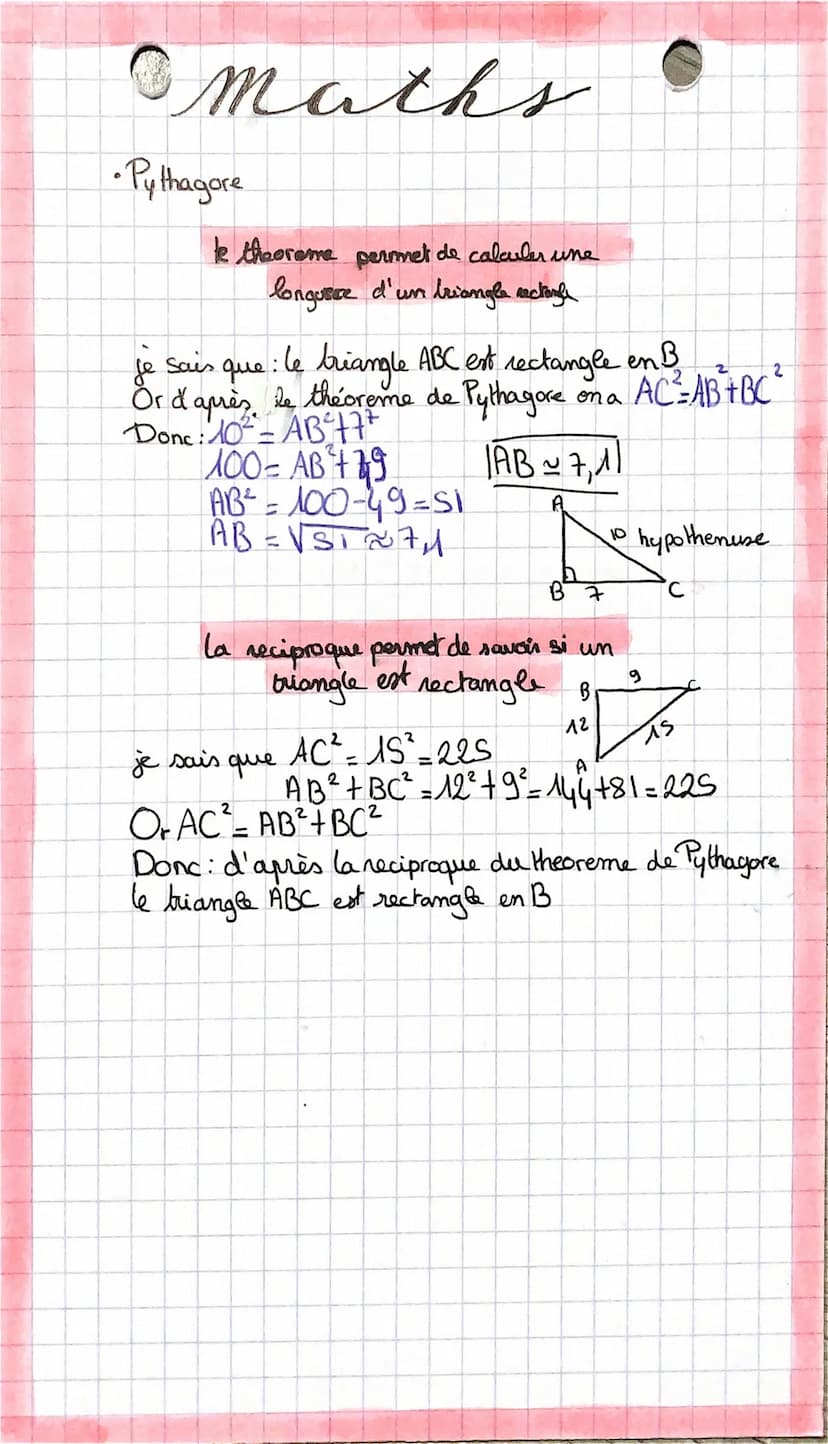 Maths
• Pythagore
le theoreme permet de calculer une
longueur d'un triangle rectangle
je sais que : le triangle ABC est rectangle en B
Or d'après le théoreme de Pythagore on a AC²=AB²+BC²
Donc : 10² = AB²+7²
100 = AB²+49
AB ≃ 7,1
AB² = 100-49=51
AB = √51 ≈ 7,1
A
10 hypothenuse
B 7 C
La reciproque permet de savoir si un
triangle est rectangle
B 9 C
12 15
A
je sais que AC² = 15² = 225
AB² + BC² = 12² + 9² = 144+81 = 225
Or AC² = AB²+BC²
Donc : d'après la reciproque du theoreme de Pythagore
le triangle ABC est rectangle en B